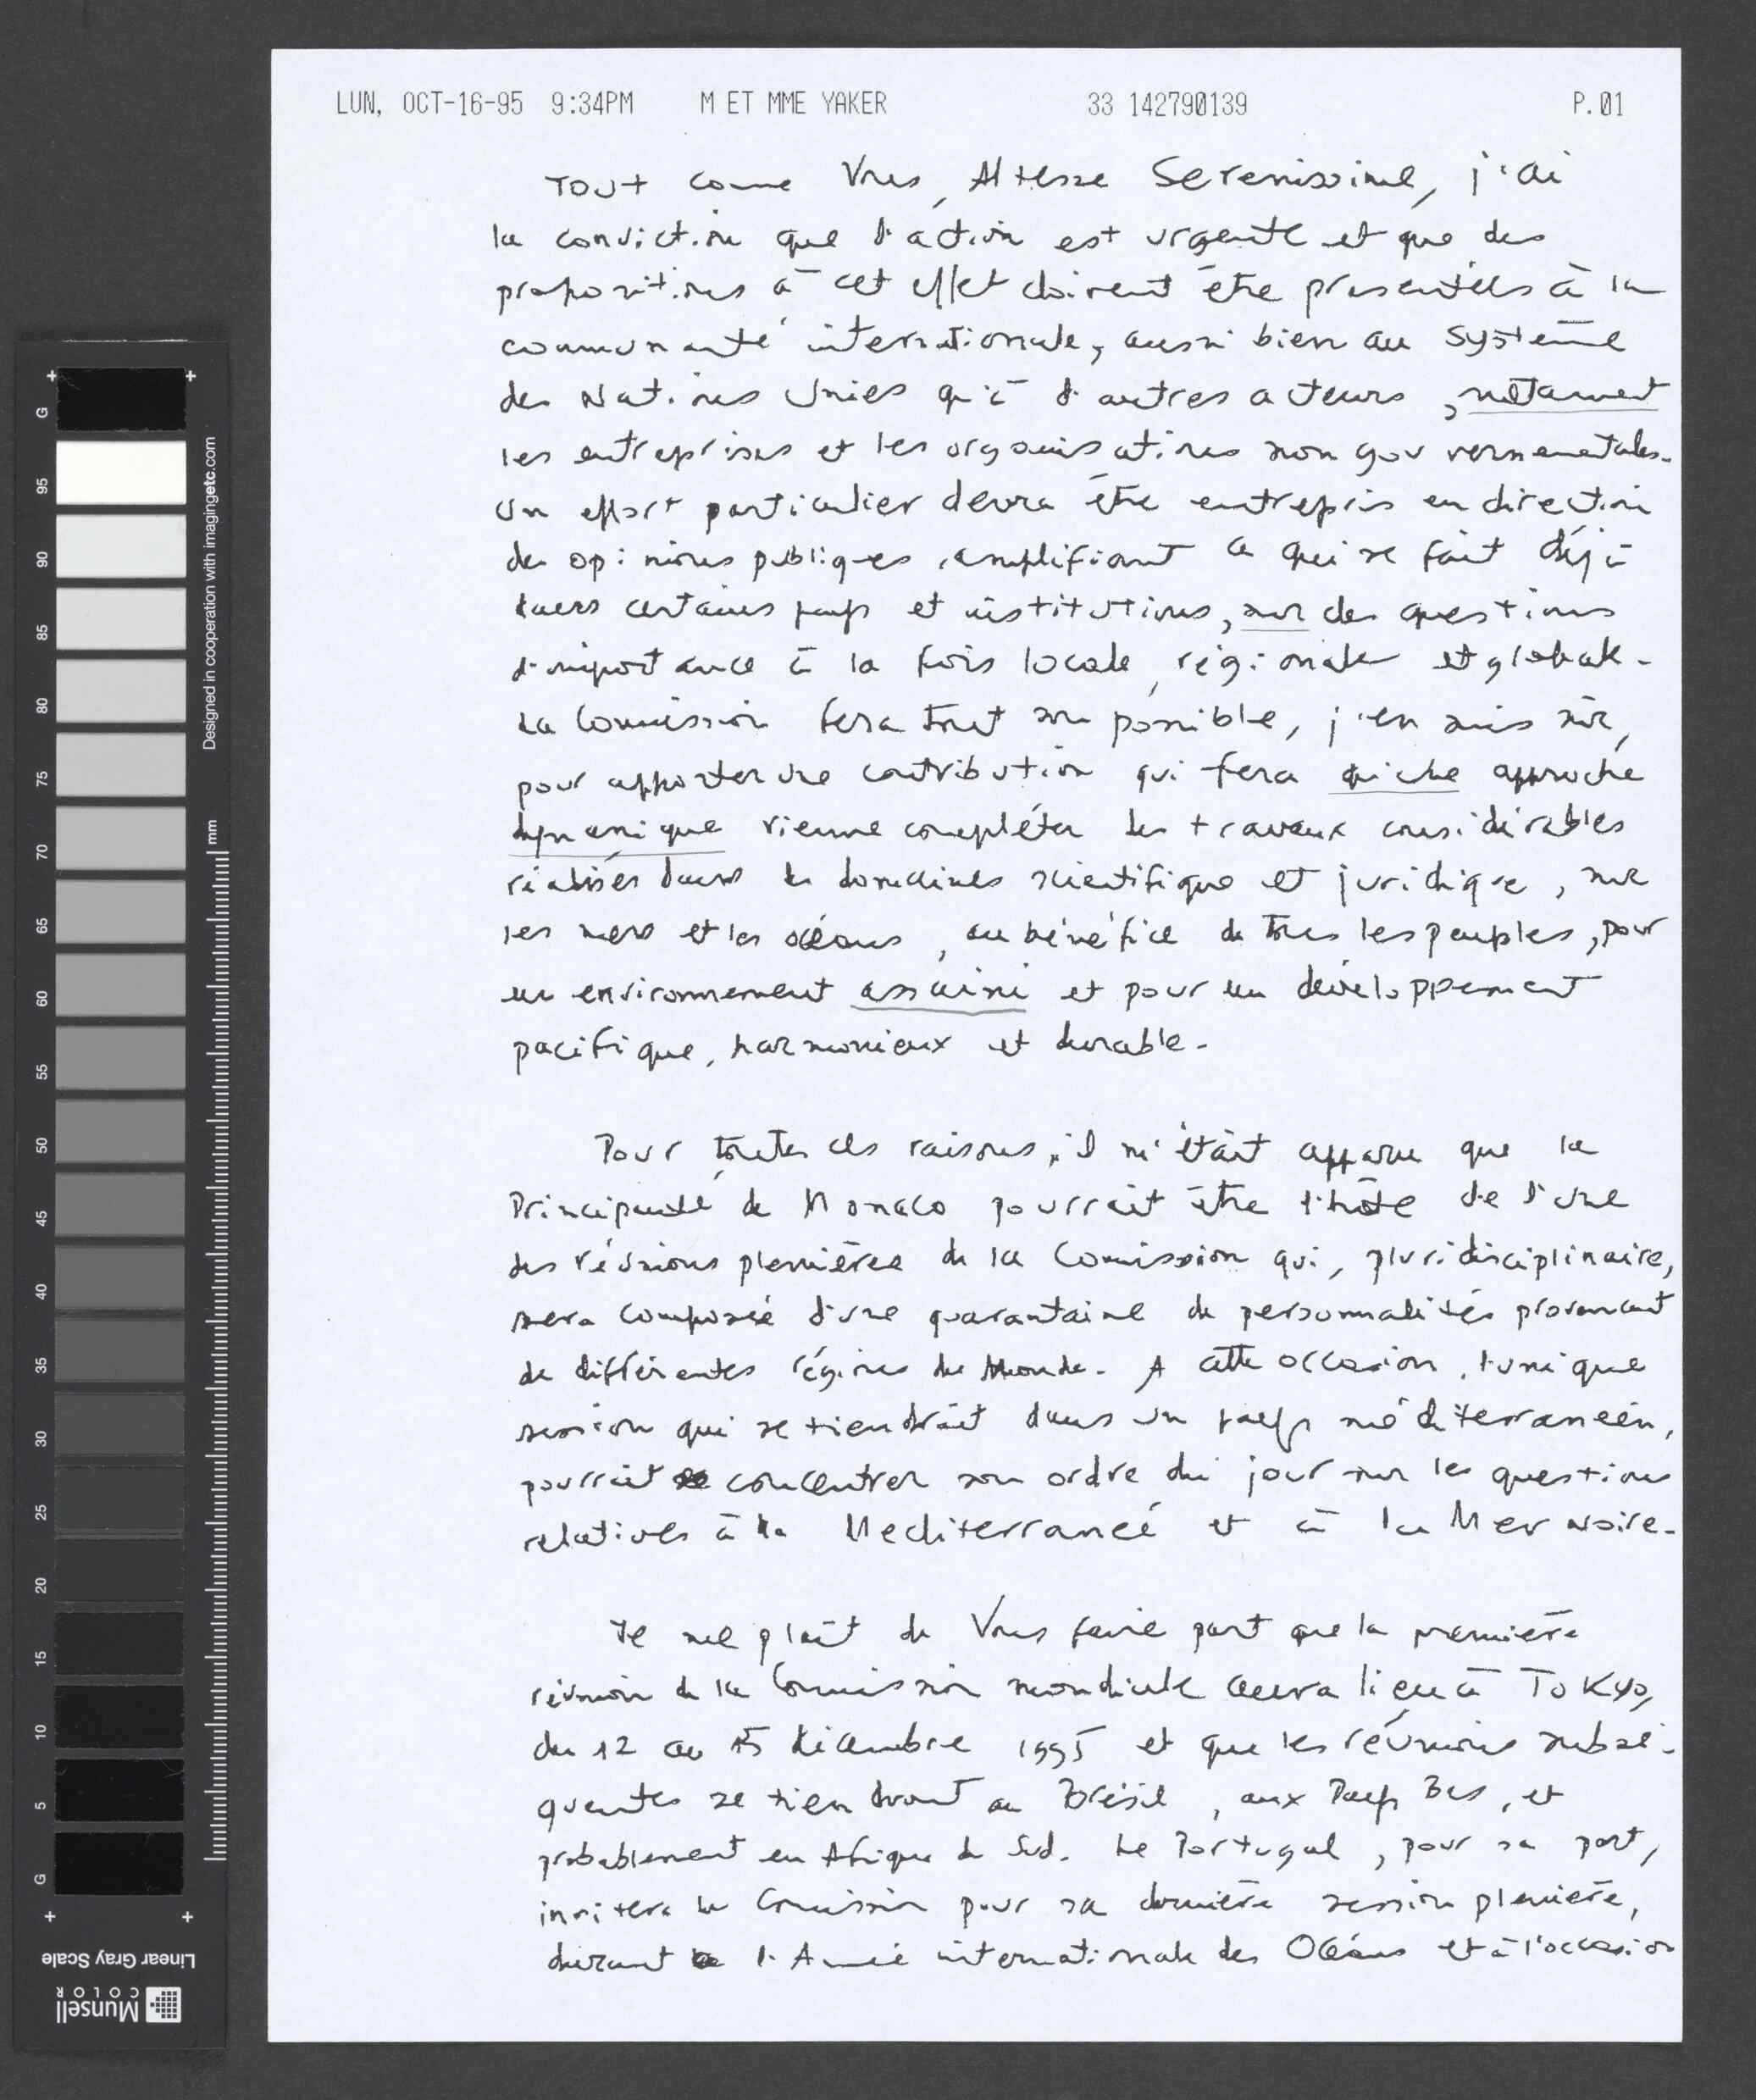 LUN, OCT-16-95 9:34PM M ET MME YAKER 33 142790139 P.01
Tout comme Vous, Altesse Serenissime, j'ai
la conviction que l'action est urgente et que des
propositions à cet effet doivent être presentées à la
communauté internationale, aussi bien au Système
des Nations Unies qu'à d'autres acteurs, notament
les entreprises et les organisations non gouvernementales.
Un effort particulier devra être entrepris en direction
des opinions publiques, amplifiant ce qui se fait déjà
dans certains pays et institutions, sur des questions
d'importance à la fois locale, régionale et globale.
La Commission fera tout son possible, j'en suis sûr,
pour apporter une contribution qui fera qu'une approche
dynamique vienne compléter les travaux considérables
réalisés dans les domaines scientifique et juridique, sur
les mers et les océans, au bénéfice de tous les peuples, pour
un environnement assaini et pour un développement
pacifique, harmonieux et durable.
Pour toutes ces raisons, il m'était apparu que la
Principauté de Monaco pourrait être l'hôte de l'une
des réunions plenières de la Commission qui, pluridisciplinaire,
sera composée d'une quarantaine de personnalités provenant
de différentes régions du Monde. A cette occasion, l'unique
session qui se tiendrait dans un pays méditerranéen,
pourrait concentrer son ordre du jour sur les questions
relatives à la Mediterranée et à la Mer Noire.
Il me plaît de Vous faire part que la première
réunion de la Commission mondiale aura lieu à Tokyo,
du 12 au 15 décembre 1995 et que les réunions subsé-
quentes se tiendront au Brésil, aux Pays Bas, et
probablement en Afrique du Sud. Le Portugal, pour sa part,
invitera la Commission pour sa dernière session plenière,
durant l'Année internationale des Océans et à l'occasion
G 95 90 85 80 75 70 65 60 55 50 45 40 35 30 25 20 15 10 5 G
Designed in cooperation with imagingetc.com
mm
Linear Gray Scale
Munsell
COLOR